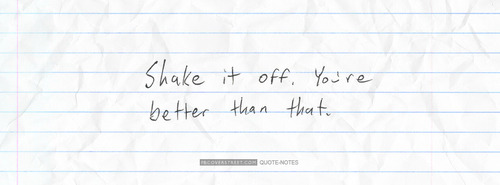 Shake it off. You're
better than that.
FBCOVERSTREET.COM QUOTE-NOTES